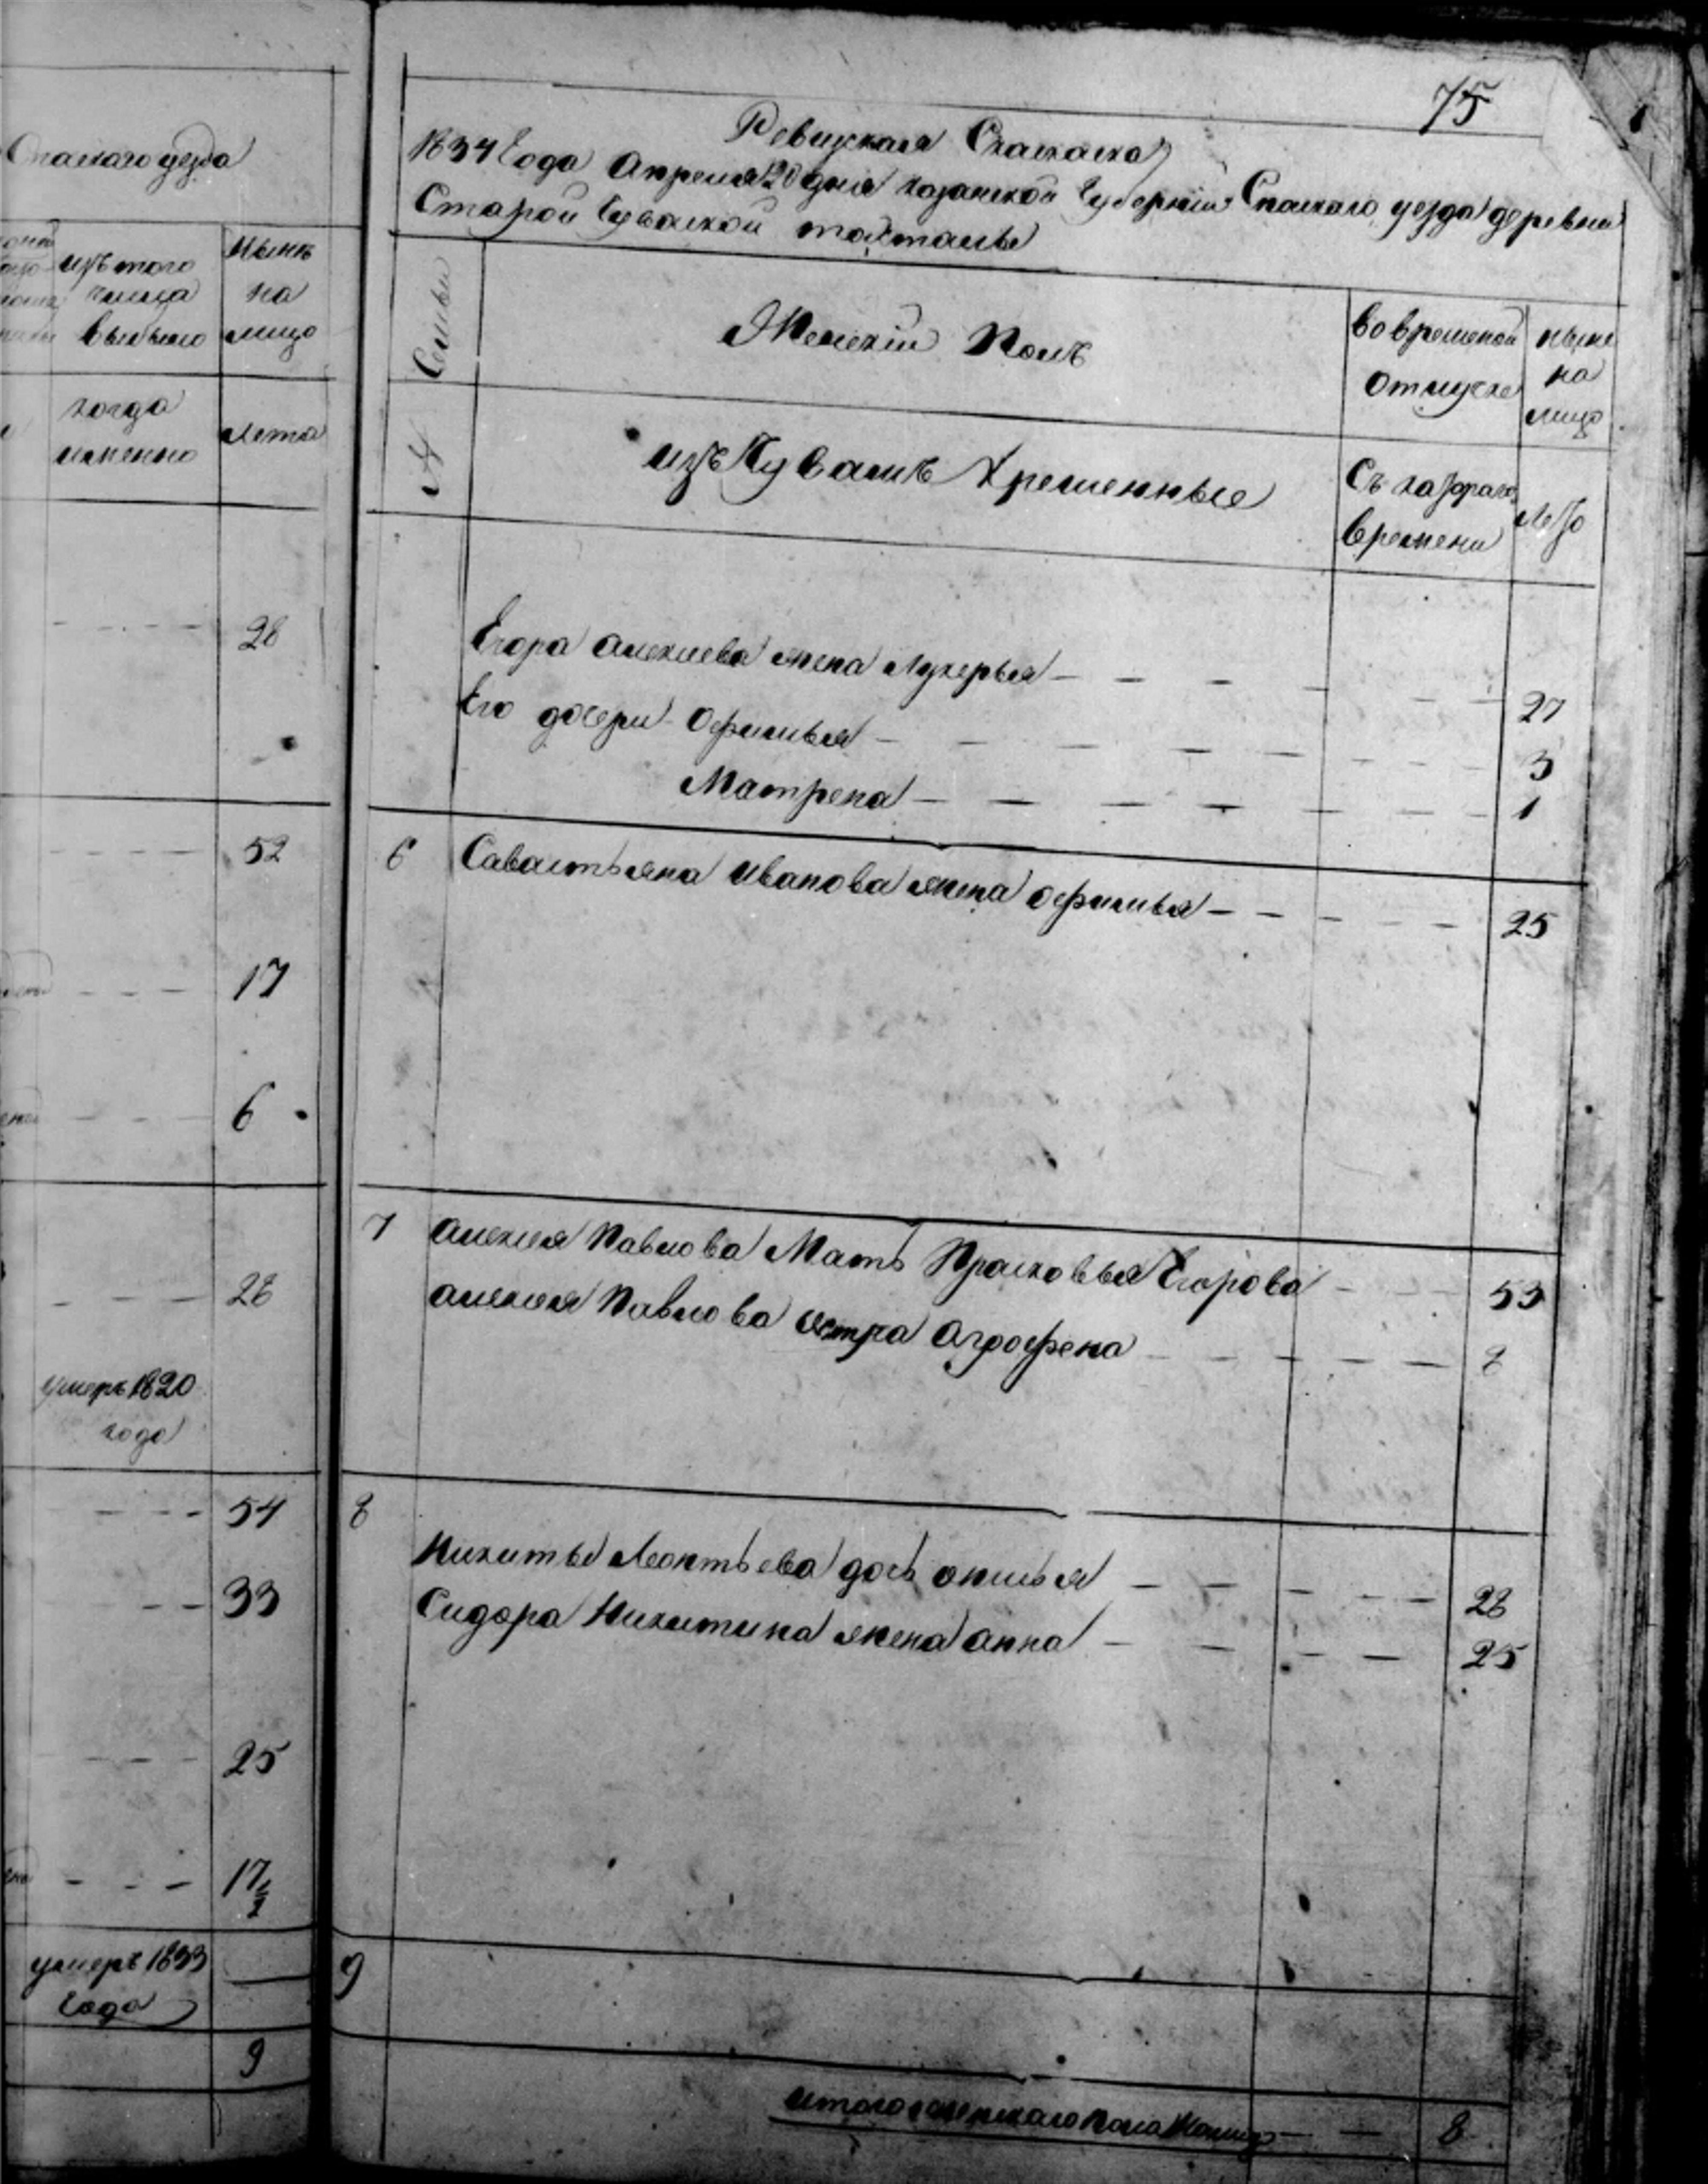 Спаскаго уезда
изъ того
числа
выбыло
Ныне
на
лицо
когда
именно
лета
28
52
17
6
28
умеръ 1820
года
54
33
25
17 1/2
умеръ 1833
года
9
75
Ревизская Скаска
1834 Года Апреля 20 дня Казанской Губернии Спаскаго уезда деревни
Старой Чуваской
Семьи
Женскій Полъ
Во временой
отлучке
ныне
на
лицо
№
изъ Чувашъ Крещенные
Съ котораго
времени
лета
Егора Алексеева жена Лукерья — — — — 27
Его дочери Офимья — — — — 3
Матрена — — — — 1
6 Савастьяна Иванова жена Офимья — — — — 25
7 Алексея Павлова Мать Прасковья Егорова — — — 53
Алексея Павлова сестра Агрофена — — — — 8
8
Никиты Леонтьева дочь Анисья — — — — 28
Сидора Никитина жена Анна — — — — 25
9
Итого женскаго пола Налицо — — 8